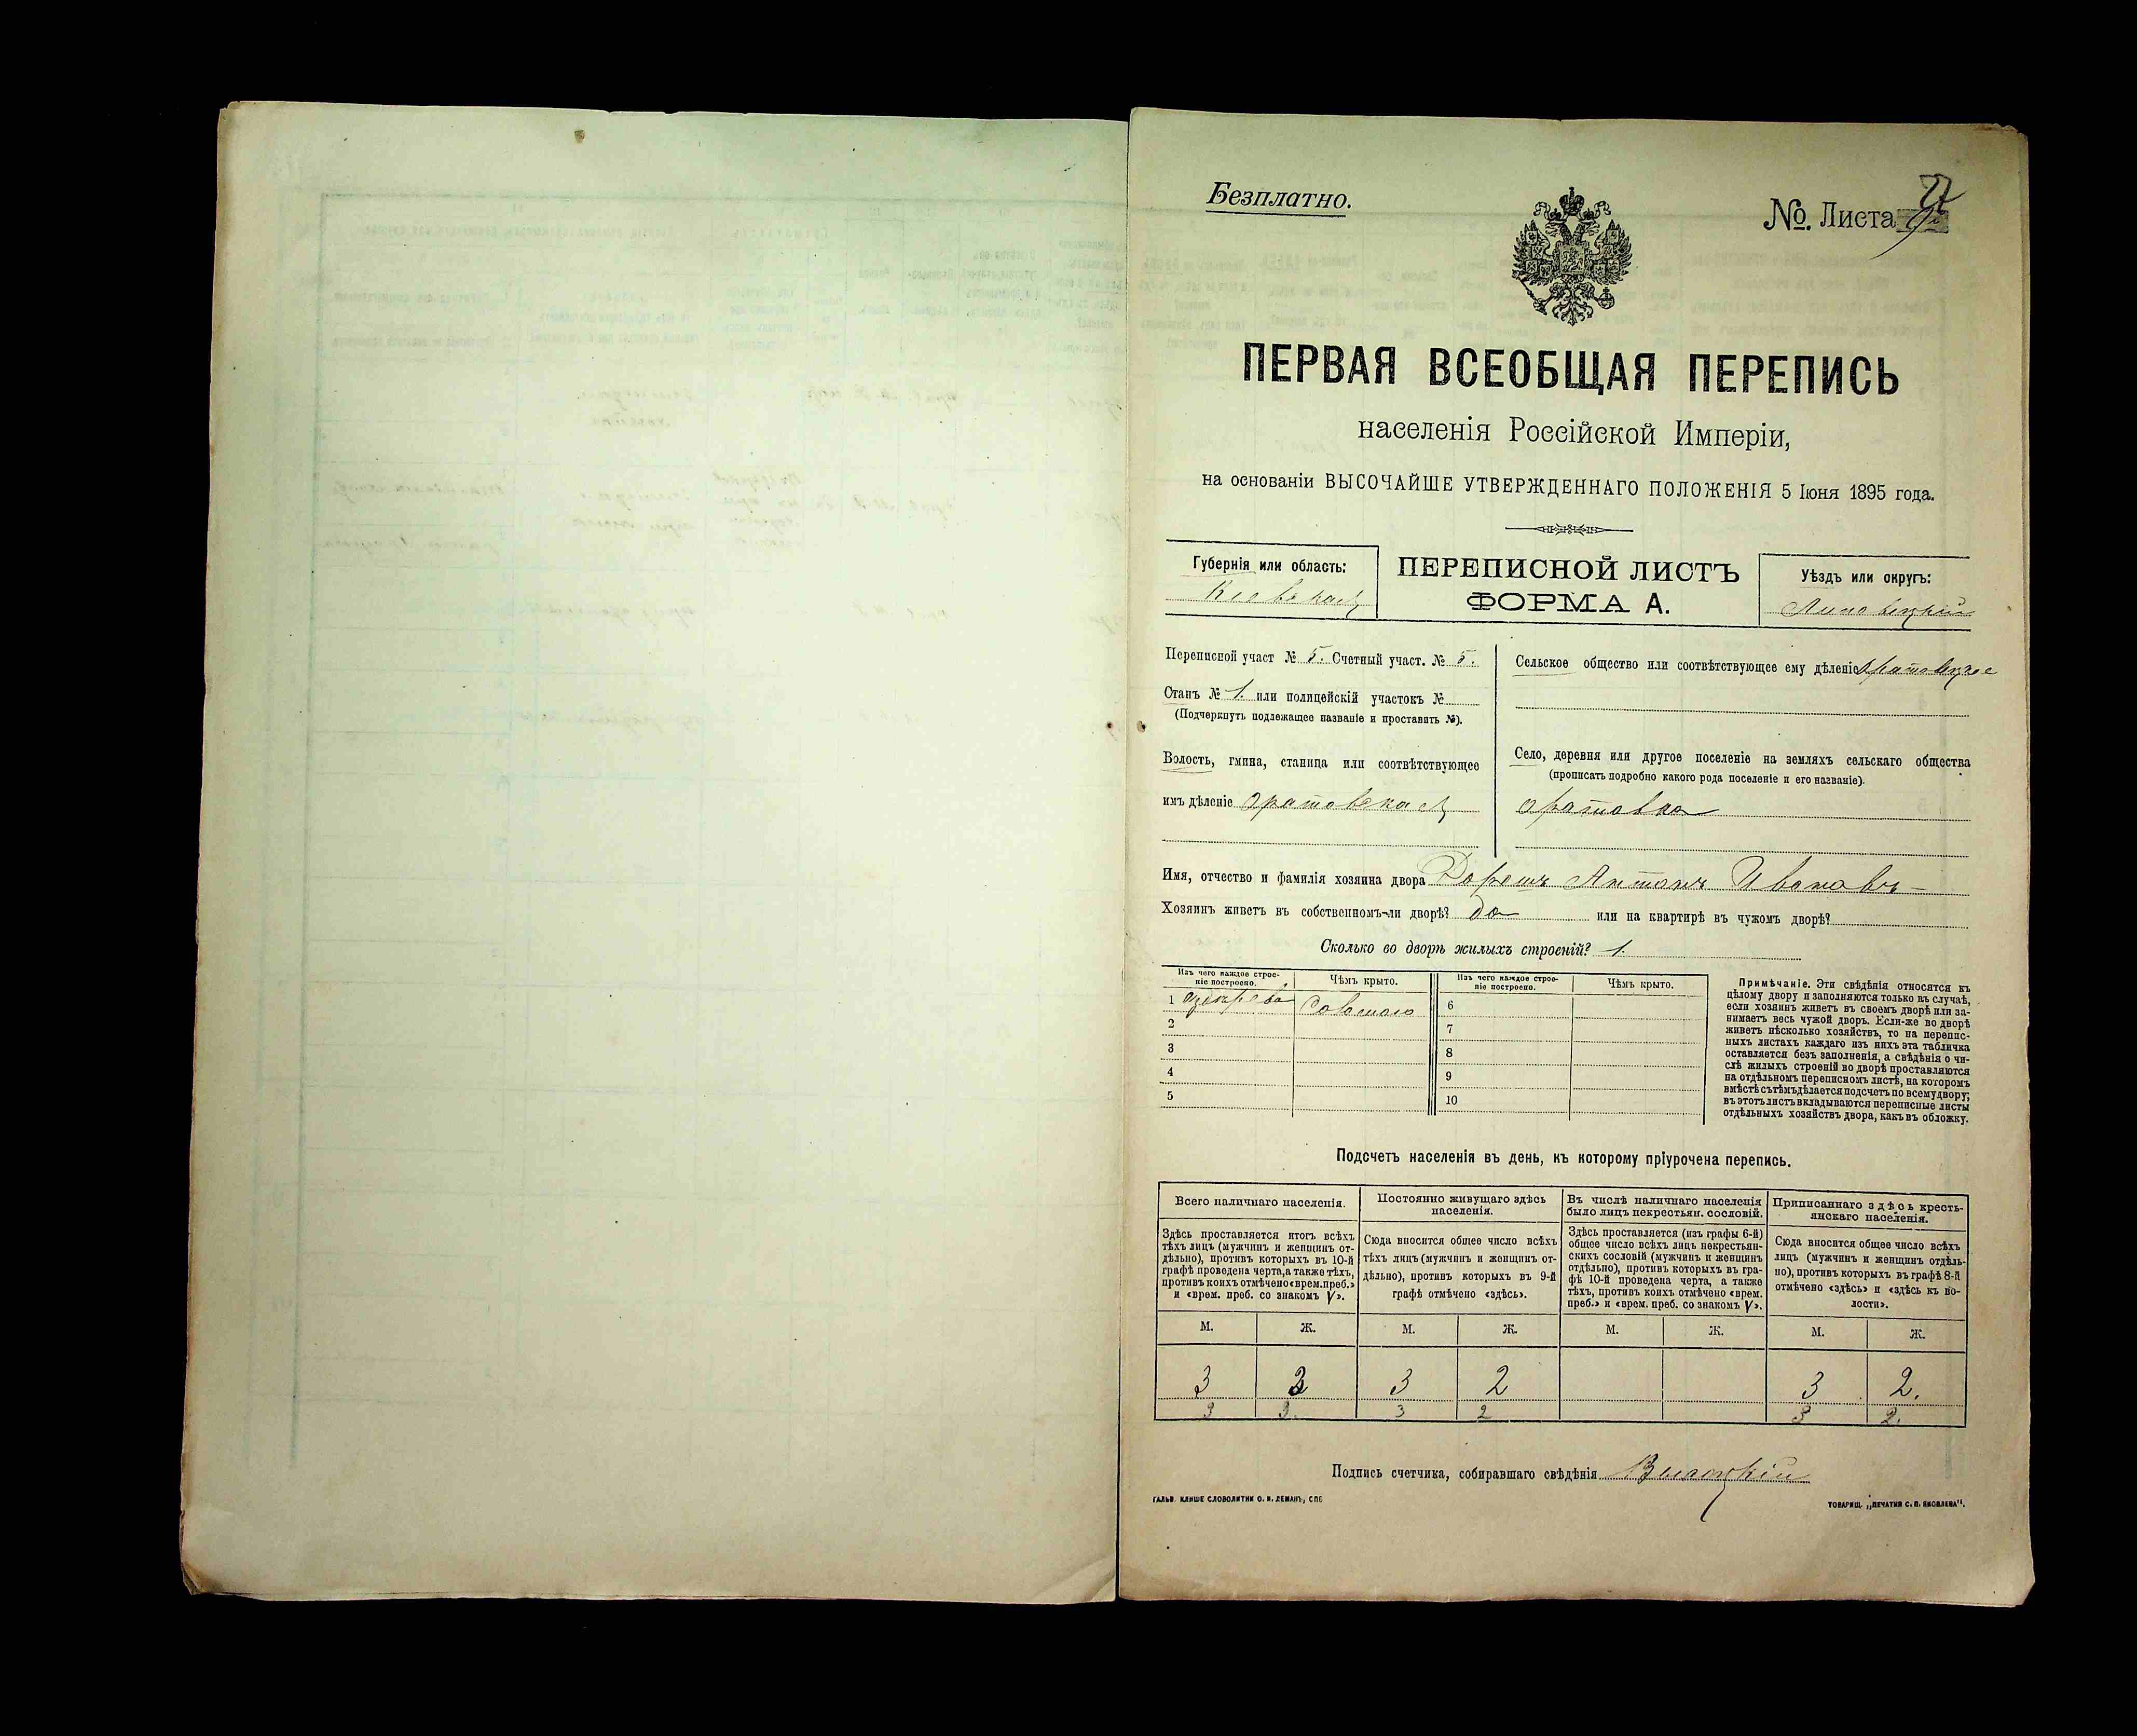 Безплатно.
№. Листа
ПЕРВАЯ ВСЕОБЩАЯ ПЕРЕПИСЬ
населенія Россійской Имперіи,
на основаніи ВЫСОЧАЙШЕ УТВЕРЖДЕННАГО ПОЛОЖЕНІЯ 5 Іюня 1895 года.
Губернія или область:
Киевская
ПЕРЕПИСНОЙ ЛИСТЪ
ФОРМА А.
Уѣздъ или округъ:
Липовецкій
Переписной участ № 5. Счетный участ. № 5.
Станъ № 1. или полицейскій участокъ №
(Подчеркнуть подлежащее названіе и проставить №).
Волость, гмина, станица или соотвѣтствующее
имъ дѣленіе Оратовская
Сельское общество или соотвѣтствующее ему дѣленіе Оратовское
Село, деревня или другое поселеніе на земляхъ сельскаго общества
(прописать подробно какого рода поселеніе и его названіе).
Оратовка
Имя, отчество и фамилія хозяина двора Дорошъ Антонъ Ивановъ
Хозяинъ живетъ въ собственномъ-ли дворѣ? да или на квартирѣ въ чужомъ дворѣ?
Сколько во дворѣ жилыхъ строеній? 1.
Изъ чего каждое строе-
ніе построено.
Чѣмъ крыто.
Изъ чего каждое строе-
ніе построено.
Чѣмъ крыто.
1 Соломою 6
2 7
3 8
4 9
5 10
Примѣчаніе. Эти свѣдѣнія относятся къ
цѣлому двору и заполняются только въ случаѣ,
если хозяинъ живетъ въ своемъ дворѣ или за-
нимаетъ весь чужой дворъ. Если-же во дворѣ
живетъ нѣсколько хозяйствъ, то на перепис-
ныхъ листахъ каждаго изъ нихъ эта табличка
оставляется безъ заполненія, а свѣдѣнія о чи-
слѣ жилыхъ строеній во дворѣ проставляются
на отдѣльномъ переписномъ листѣ, на которомъ
вмѣстѣ съ тѣмъ дѣлается подсчетъ по всему двору;
въ этотъ листъ вкладываются переписные листы
отдѣльныхъ хозяйствъ двора, какъ въ обложку.
Подсчетъ населенія въ день, къ которому пріурочена перепись.
Всего наличнаго населенія.
Здѣсь проставляется итогъ всѣхъ
тѣхъ лицъ (мужчинъ и женщинъ от-
дѣльно), противъ которыхъ въ 10-й
графѣ проведена черта, а также тѣхъ,
противъ коихъ отмѣчено «врем. преб.»
и «врем. преб. со знакомъ V».
Постоянно живущаго здѣсь
населенія.
Сюда вносится общее число всѣхъ
тѣхъ лицъ (мужчинъ и женщинъ от-
дѣльно), противъ которыхъ въ 9-й
графѣ отмѣчено «здѣсь».
Въ числѣ наличнаго населенія
было лицъ некрестьян. сословій.
Здѣсь проставляется (изъ графы 6-й)
общее число всѣхъ лицъ некрестьян-
скихъ сословій (мужчинъ и женщинъ
отдѣльно), противъ которыхъ въ гра-
фѣ 10-й проведена черта, а также
тѣхъ, противъ коихъ отмѣчено «врем.
преб.» и «врем. преб. со знакомъ V».
Приписаннаго здѣсь кресть-
янскаго населенія.
Сюда вносится общее число всѣхъ
лицъ (мужчинъ и женщинъ отдѣль-
но), противъ которыхъ въ графѣ 8-й
отмѣчено «здѣсь» и «здѣсь къ во-
лости».
М. Ж. М. Ж. М. Ж. М. Ж.
3 3 2 3 2.
3 3 2 3 2.
Подпись счетчика, собиравшаго свѣдѣнія
ГАЛЬВ. КЛИШЕ СЛОВОЛИТНИ О. И. ЛЕМАНЪ, СПБ
ТОВАРИЩ. „ПЕЧАТНЯ С. П. ЯКОВЛЕВА".